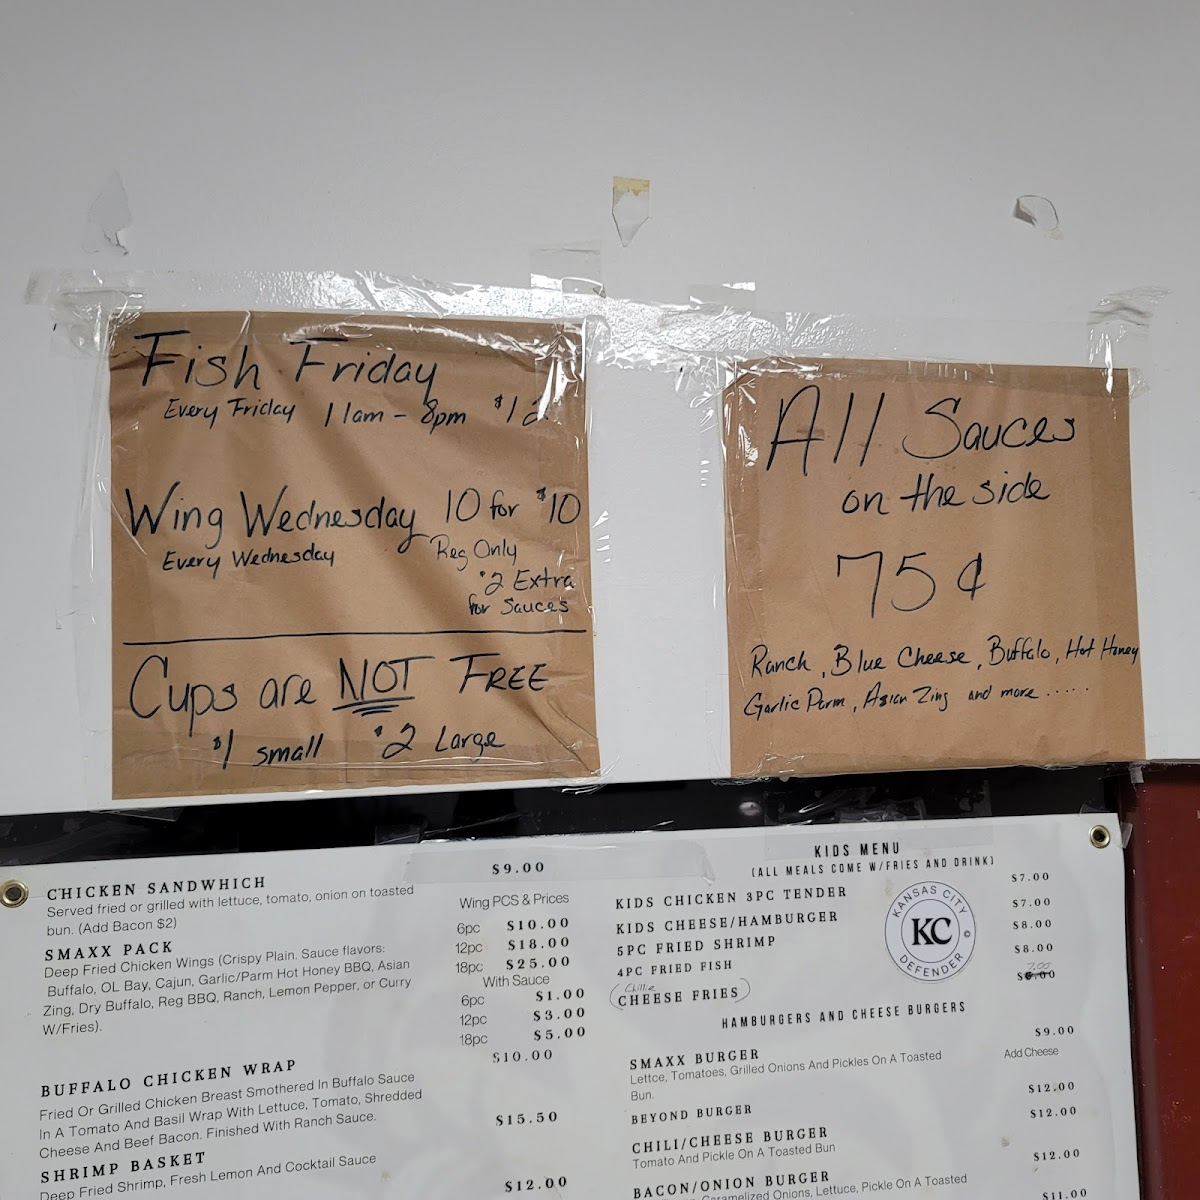 Fish Friday
Every Friday 11am - 8pm $12
Wing Wednesday 10 for $10
Every Wednesday Reg Only
$2 Extra
for Sauces
Cups are NOT FREE
$1 small $2 Large
All Sauces
on the side
75¢
Ranch, Blue Cheese, Buffalo, Hot Honey
Garlic Parm, Asian Zing and more .....
CHICKEN SANDWHICH $9.00
Served fried or grilled with lettuce, tomato, onion on toasted
bun. (Add Bacon $2)
SMAXX PACK
Deep Fried Chicken Wings (Crispy Plain. Sauce flavors:
Buffalo, OL Bay, Cajun, Garlic/Parm Hot Honey BBQ, Asian
Zing, Dry Buffalo, Reg BBQ, Ranch, Lemon Pepper, or Curry
W/Fries).
Wing PCS & Prices
6pc $10.00
12pc $18.00
18pc $25.00
With Sauce
6pc $1.00
12pc $3.00
18pc $5.00
BUFFALO CHICKEN WRAP $10.00
Fried Or Grilled Chicken Breast Smothered In Buffalo Sauce
In A Tomato And Basil Wrap With Lettuce, Tomato, Shredded
Cheese And Beef Bacon. Finished With Ranch Sauce.
SHRIMP BASKET $15.50
Deep Fried Shrimp, Fresh Lemon And Cocktail Sauce
$12.00
KIDS MENU
(ALL MEALS COME W/FRIES AND DRINK)
KIDS CHICKEN 3PC TENDER $7.00
KIDS CHEESE/HAMBURGER $7.00
5PC FRIED SHRIMP $8.00
4PC FRIED FISH $8.00
Chillie
(CHEESE FRIES) 7.00
KANSAS CITY
KC
©
DEFENDER
HAMBURGERS AND CHEESE BURGERS
SMAXX BURGER $9.00
Lettce, Tomatoes, Grilled Onions And Pickles On A Toasted
Bun.
Add Cheese
BEYOND BURGER $12.00
CHILI/CHEESE BURGER $12.00
Tomato And Pickle On A Toasted Bun
BACON/ONION BURGER $12.00
Caramelized Onions, Lettuce, Pickle On A Toasted
$11.00